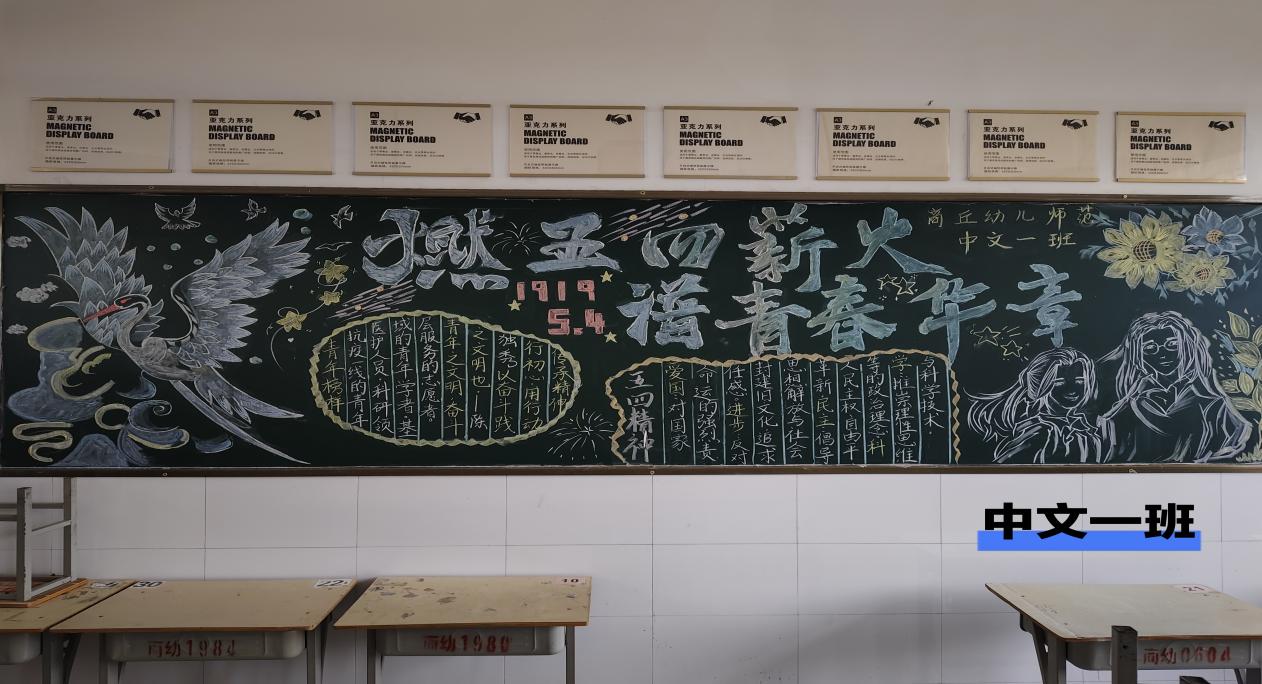 A3
亚克力系列
MAGNETIC
DISPLAY BOARD
使用范围
A3
亚克力系列
MAGNETIC
DISPLAY BOARD
使用范围
A3
亚克力系列
MAGNETIC
DISPLAY BOARD
使用范围
A3
亚克力系列
MAGNETIC
DISPLAY BOARD
使用范围
A3
亚克力系列
MAGNETIC
DISPLAY BOARD
使用范围
A3
亚克力系列
MAGNETIC
DISPLAY BOARD
使用范围
A3
亚克力系列
MAGNETIC
DISPLAY BOARD
使用范围
A3
亚克力系列
MAGNETIC
DISPLAY BOARD
使用范围
商丘幼儿师范
中文一班
燃五四薪火
谱青春华章
1919
5.4
青年榜样
抗疫一线的青年
医护人员、科研领
域的青年学者、基
层服务的志愿者。
青年之文明,奋斗
之文明也——陈
独秀。以奋斗践
行初心,用行动
传承精神
五四精神
爱国:对国家
命运的强烈责
任感。进步:反对
封建旧文化,追求
思想解放与社会
革新。民主:倡导
人民主权、自由平
等的政治理念。科
学:推崇理性思维
与科学技术。
中文一班
30
22
10
21
商幼1984
商幼1980
商幼0604